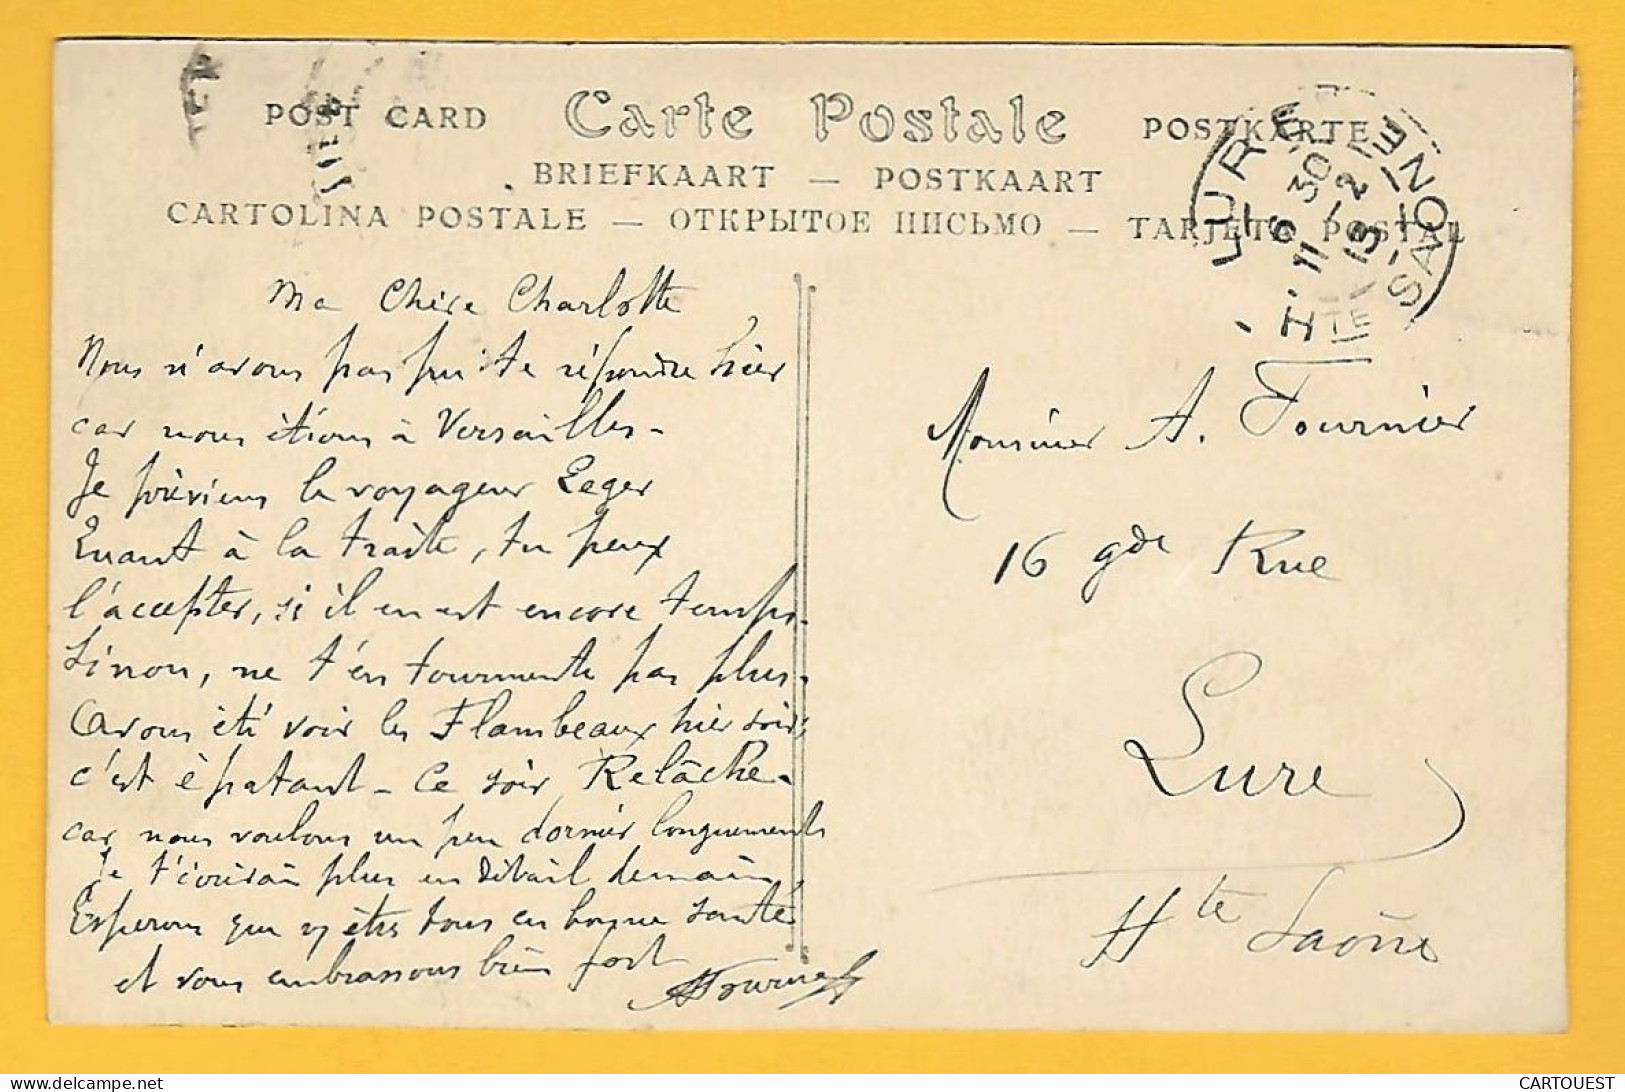 POST CARD Carte Postale POSTKARTE
BRIEFKAART — POSTKAART
CARTOLINA POSTALE — ОТКРЫТОЕ ПИСЬМО — TARJETA POSTAL
LURE
6 30
11 - 2
13
Hte SAONE
Ma Chère Charlotte
Nous n'avons pas pu te répondre hier
car nous étions à Versailles -
Je préviens le voyageur Leger
Quant à la traite, tu peux
l'accepter, si il en est encore temps.
Sinon, ne t'en tourmente pas plus.
Avons été voir les Flambeaux hier soir,
c'est épatant - Ce soir Relâche -
car nous voulons un peu dormir longuement
Je t'écrirai plus en détail demain,
Espérons que vs êtes tous en bonne santé
et vous embrassons bien fort
AFournier
Monsieur A. Fournier
16 gde Rue
Lure
Hte Saône
delcampe.net
CARTOUEST